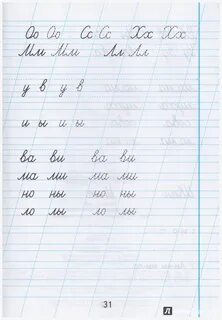 Оо Оо Сс Сс Хх Хх
Мм Мм Лл Лл
у в у в
и ы и ы
ва ви ва ви
ма ми ма ми
но ны но ны
ло лы ло лы
31
Л